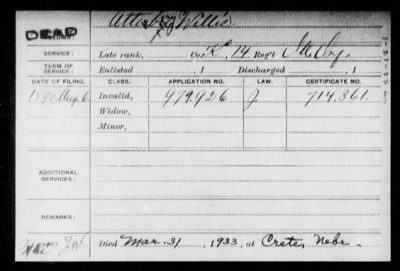 Atterberry, Willis
DEAD
SERVICE: Late rank, Co. K, 14 Reg't Ills Inf.
TERM OF SERVICE: Enlisted , 1 Discharged , 1
DATE OF FILING. CLASS. APPLICATION NO. LAW. CERTIFICATE NO.
1890 Aug. 6 Invalid, 979.926 J. 714.861.
Widow,
Minor,
ADDITIONAL SERVICES:
REMARKS:
Died Mar. 31, 1933, at Crete, Nebr.